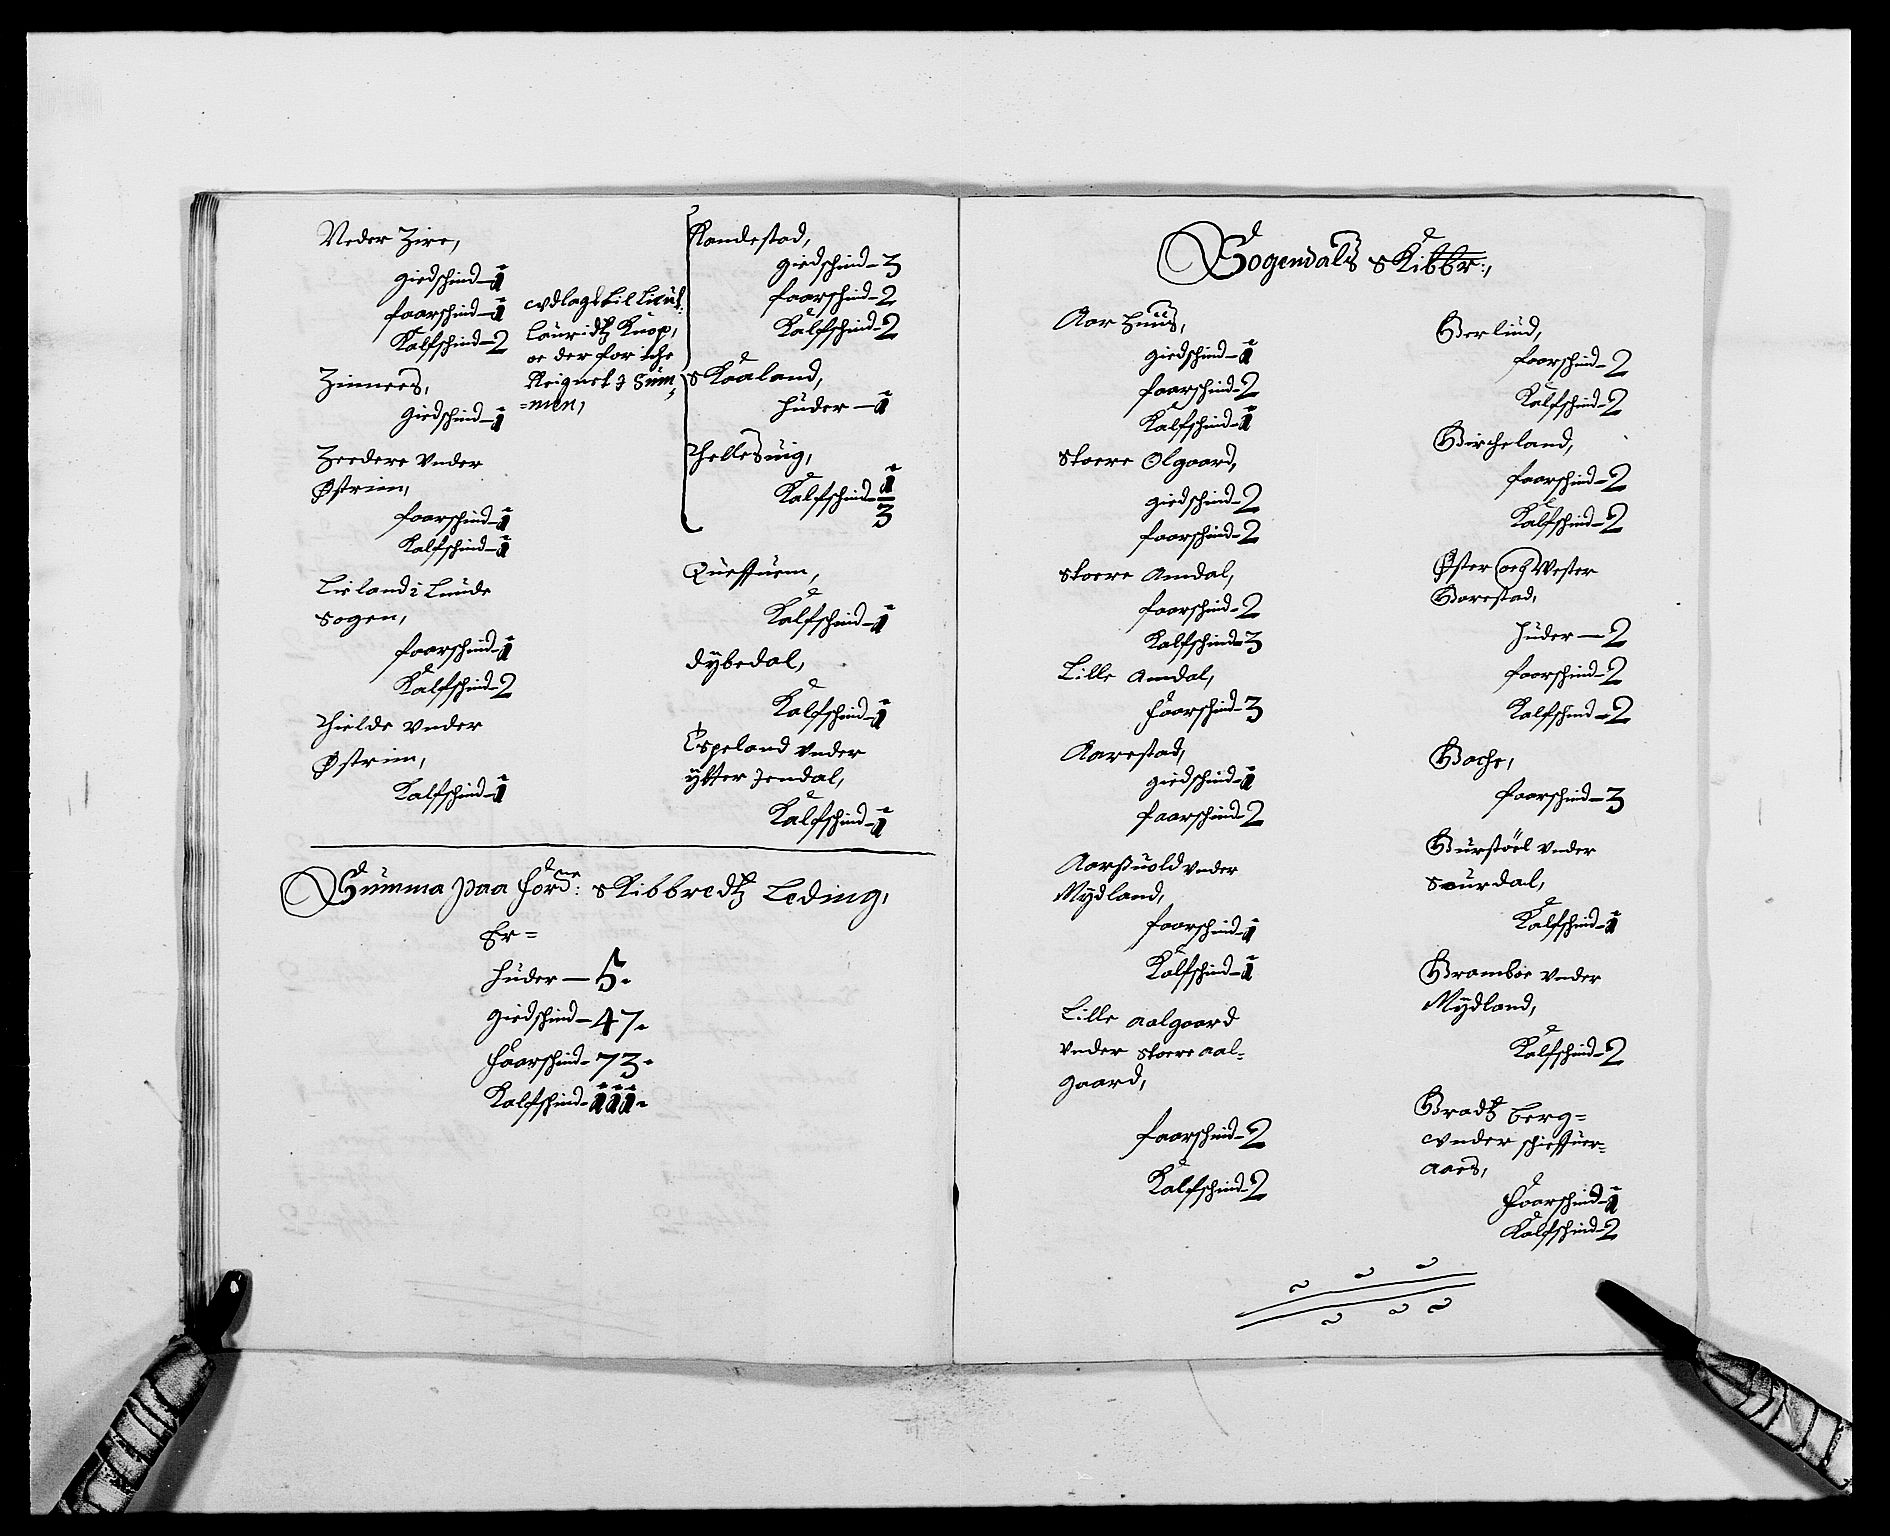 Neder Zire,
giedschind – 1
faarschind – 1
Kalfschind – 2
Zinnees,
giedschind – 1
Zeedere vnder
Østrim,
faarschind – 1
Kalfschind – 1
Lieland i Lunde
Sogen,
faarschind – 1
Kalfschind – 2
Thielde vnder
Østrim,
Kalfschind – 1
vdlagt til Lieut:
Lauridtz Knop,
er der for iche
Reignet i Sum
=men,
Randestad,
giedschind – 3
faarschind – 2
Kalfschind – 2
Skaaland,
Huder – 1
Thellesuig,
Kalfschind – 1/3
Quessuem,
Kalfschind – 1
Dÿbedal,
Kalfschind – 1
Espeland vnder
ÿtter Jendal,
Kalfschind – 1
Summa paa ford:ne Skibbredtz Leding,
Er =
Huder – 5.
giedschind – 47.
Faarschind – 73.
Kalfschind – 111.
Sogendals Skibbr:,
Aar Huus,
giedschind – 1
faarschind – 2
Kalfschind – 1
Stoere Olgaard,
giedschind – 2
faarschind – 2
Stoere Amdal,
faarschind – 2
Kalfschind – 3
Lille Amdal,
Faarschind – 3
Aarestad,
giedschind – 1
faarschind – 2
Aarßuold vnder
Mÿdland,
faarschind – 1
Kalfschind – 1
Lille Aalgaard
vnder Stoere Aal=
gaard,
faarschind – 2
Kalfschind – 2
Berlund,
faarschind – 2
Kalfschind – 2
Bircheland,
faarschind – 2
Kalfschind – 2
Øster och Wester
Barestad,
Huder – 2
faarschind – 2
Kalfschind – 2
Bache,
faarschind – 3
Burstöel vnder
Saurdal,
Kalfschind – 1
Bramboe vnder
Mÿdland,
Kalfschind – 2
Bradtz berg=
vnder schieffuer=
aaes,
Faarschind – 1
Kalfschind – 2